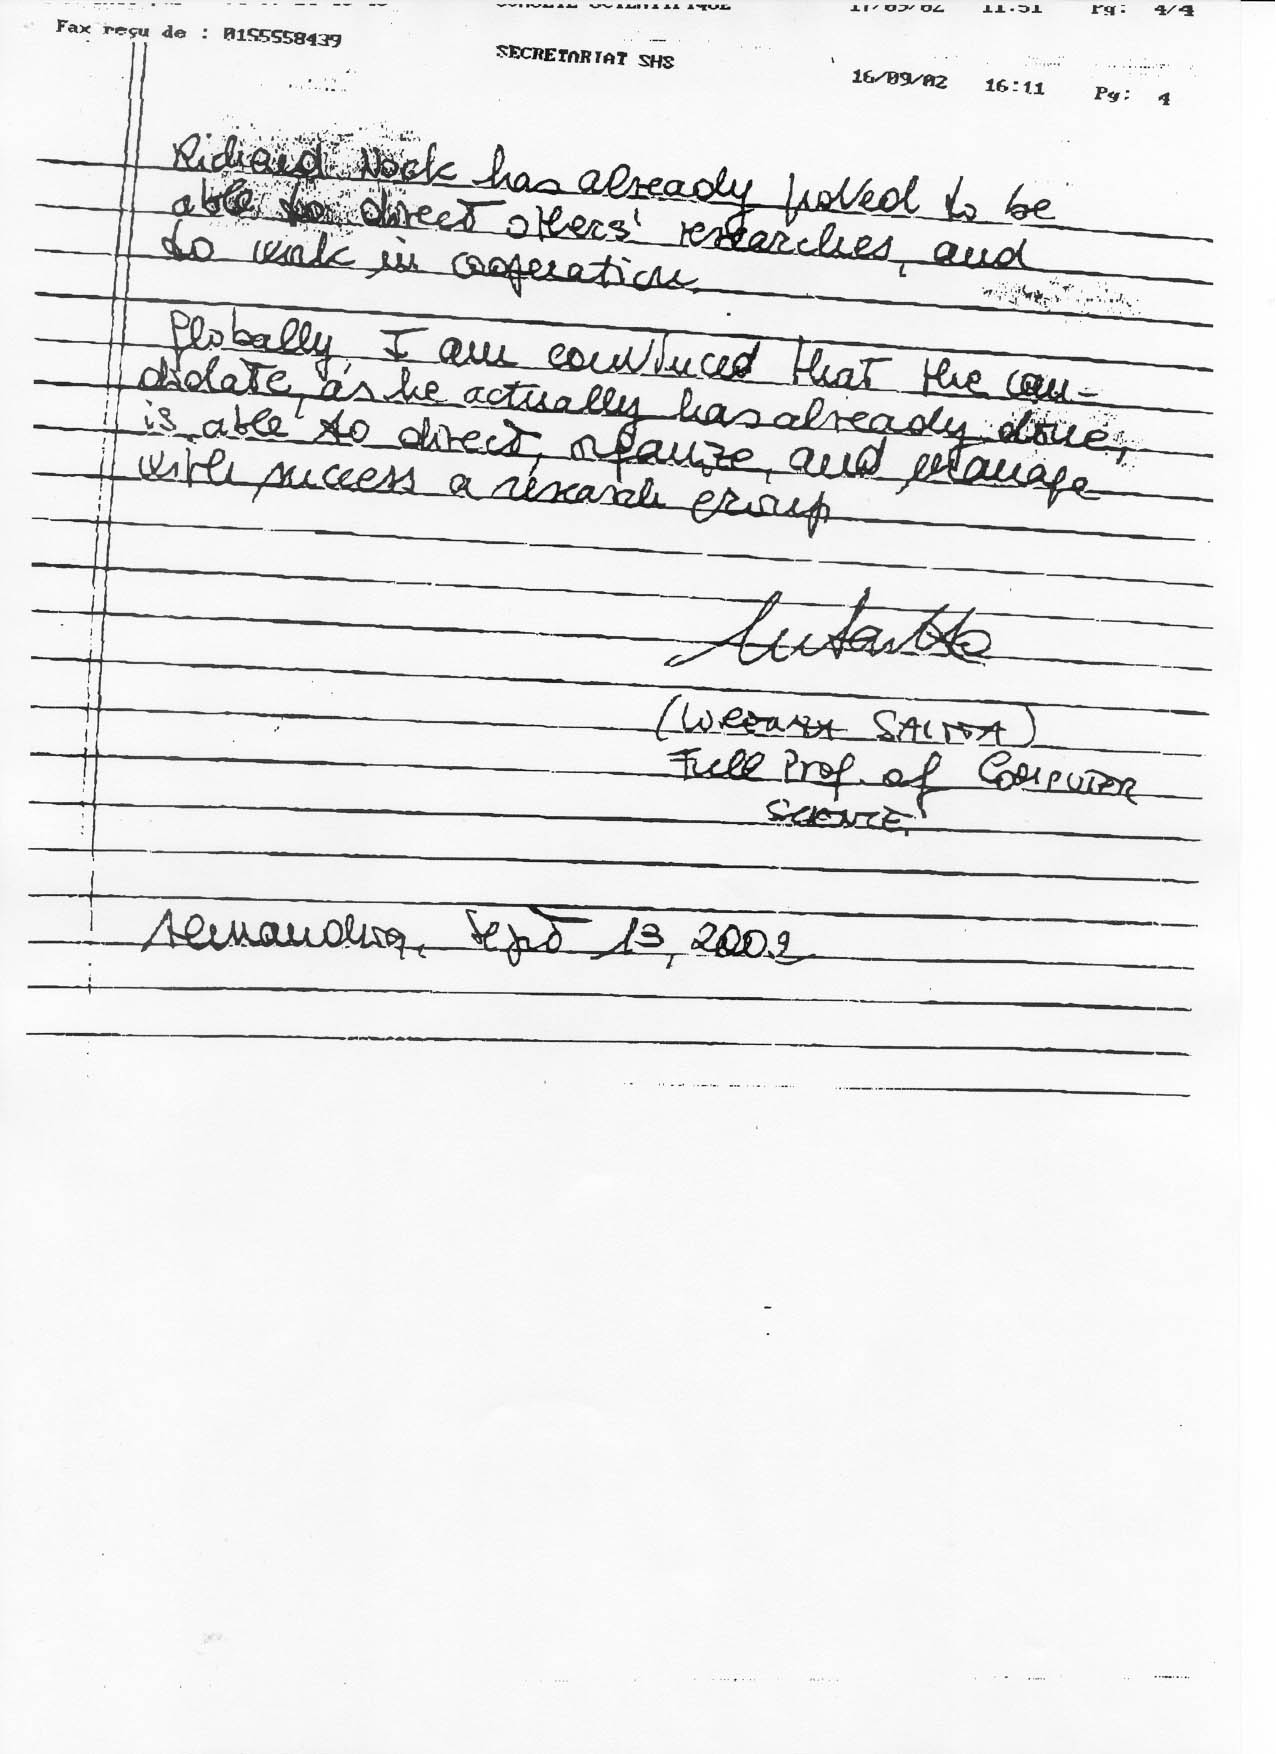 CONSEIL SCIENTIFIQUE 17/09/02 11:51 Pg: 4/4
Fax reçu de : 0155558439 SECRETARIAT SHS 16/09/02 16:11 Pg: 4
Richard Nock has already proved to be
able to direct others' researches, and
to work in cooperation.
Globally, I am convinced that the can-
didate, as he actually has already done,
is able to direct, organize, and manage
with success a research group
(Lorenza SAITTA)
Full Prof. of COMPUTER
SCIENCE
Alessandria, Sept 13, 2002